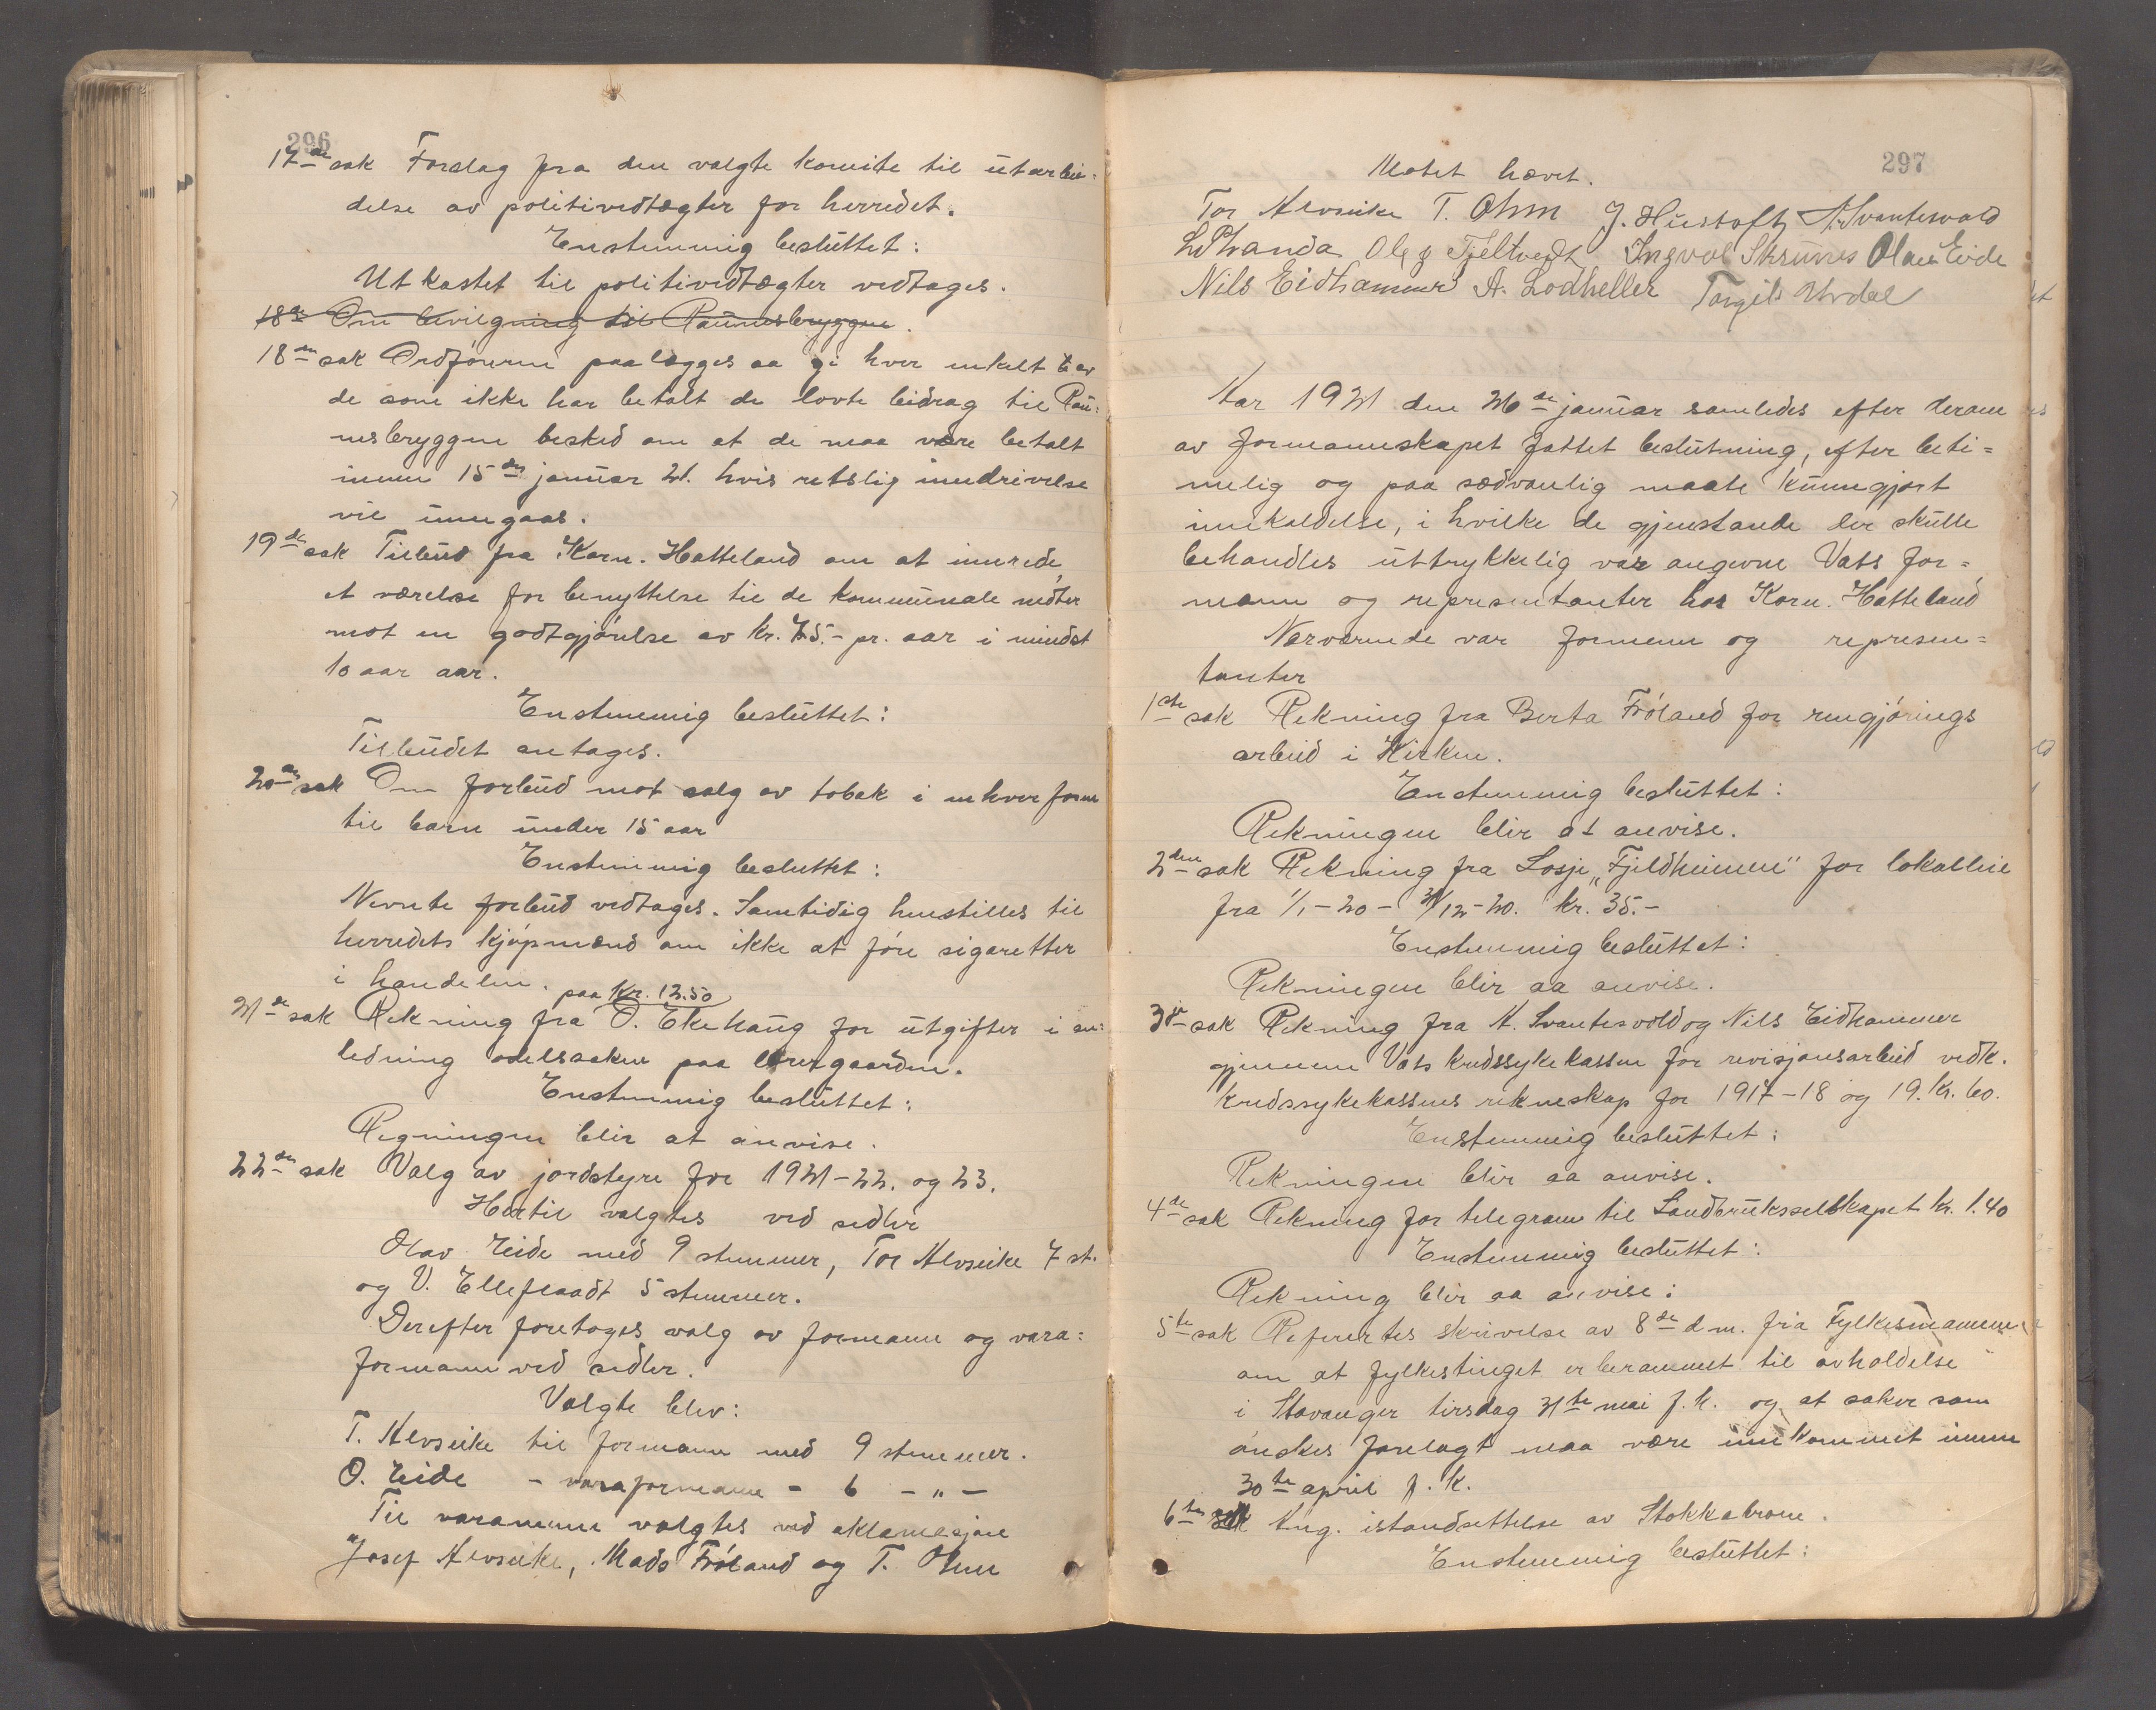 296
17de sak Forslag fra den valgte komite til utarbei=
delse av politivedtægter for herredet.
Enstemmig besluttet:
Utkastet til politivedtægter vedtages.
18de Om bevilgning til Raunesbryggen.
18de sak Ordføreren paalægges aa gi hver enkelt av
de som ikke har betalt de lovte bidrag til Rau=
nesbryggen besked om at de maa være betalt
innen 15de januar 21. hvis retslig inndrivelse
vil unngaaes.
19de sak Tilbud fra Korn. Hatteland om at innrede
et værelse for benyttelse til de kommunale møter
mot en godtgjørelse av kr. 75.- pr. aar i mindst
10 aar aar.
Enstemmig besluttet:
Tilbudet antages.
20de sak Om forbud mot salg av tobak i enhver form
til barn under 15 aar
Enstemmig besluttet:
Nevnte forbud vedtages. Samtidig henstilles til
herredets kjøpmænd om ikke at føre sigaretter
i handelen.
paa Kr. 12.50
21de sak Rekning fra O. Ekehaug for utgifter i an=
ledning odelssaken paa lensgaarden.
Enstemmig besluttet:
Regningen blir at anvise.
22de sak Valg av jordstyre for 1921-22. og 23.
Hertil valgtes ved sedler
Olav Eide med 9 stemmer, Tor Alvseike 7 st.
og V. Ellefsaadt 5 stemmer.
Derefter foretoges valg av formann og vara=
formann ved sedler.
Valgte blev:
T. Alvseike til formann med 9 stemmer.
O. Eide - varaformann - 6 - " -
Til varamenn valgtes ved aklamasjon
Josef Alvseike, Mads Frøland og T. Ohm
297
Møtet hævet.
Tor Alvseike T. Ohm J. Hustoft A. Svantesvold
L. Stranda Ole J Fjeltvedt Ingvol Skrunes Olav Eide
Nils Eidhammer A. Lodheller Torgils Urdal
Aar 1921 den 26de januar samledes efter derom
av formannskapet fattet beslutning, efter beti=
melig og paa sædvanlig maate kunngjort
innkaldelse, i hvilke de gjenstande der skulle
behandles uttrykkelig var angevne Vats for=
menn og representanter hos Korn. Hatteland
Nærværende var formenn og represen=
tanter
1ste sak Rekning fra Berta Frøland for rengjørings
arbeid i Kirken.
Enstemmig besluttet:
Rekningen blir at anvise.
2den sak Rekning fra Losje „Fjeldheimen" for lokalleie
fra 1/1-20 - 31/12-20. kr. 35.-
Enstemmig besluttet:
Rekningen blir aa anvise.
3de sak Rekning fra A. Svantesvold og Nils Eidhammer
gjennem Vats kredssykekassen for revisjonsarbeid vedk.
kredssykekassens rekneskap for 1917-18 og 19. Kr. 60.
Enstemmig besluttet:
Rekningen blir aa anvise.
4de sak Rekning for telegram til Landbruksselskapet kr. 1.40
Enstemmig besluttet:
Rekning blir aa anvise:
5te sak Referertes skrivelse av 8de d m. fra Fylkesmannen
om at fylkestinget er berammet til avholdelse
i Stavanger tirsdag 31te mai f.k. og at saker som
ønskes forelagt maa være innkommet innen
30te april f.k.
6te sak Ang. istandsettelse av Stokkabroen.
Enstemmig besluttet: